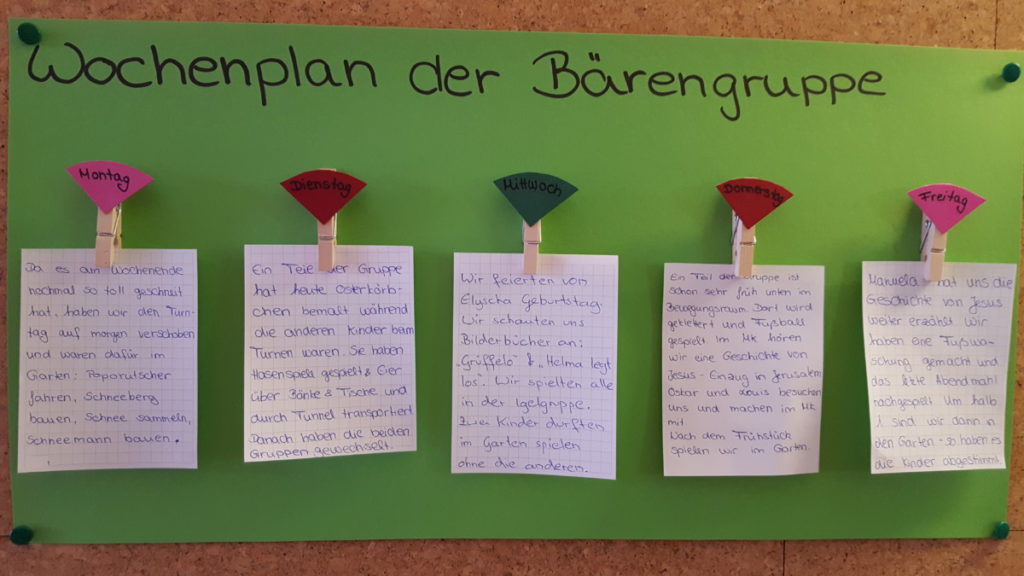 Wochenplan der Bärengruppe
Montag
Da es am Wochenende
nochmal so toll geschneit
hat, haben wir den Turn-
tag auf morgen verschoben
und waren dafür im
Garten: Poporutscher
fahren, Schneeberg
bauen, Schnee sammeln,
Schneemann bauen.
Dienstag
Ein Teil der Gruppe
hat heute Osterkörb-
chen bemalt während
die anderen Kinder beim
Turnen waren. Sie haben
Hasenspiele gespielt & Eier
über Bänke & Tische und
durch Tunnel transportiert.
Danach haben die beiden
Gruppen gewechselt.
Mittwoch
Wir feierten von
Elyscha Geburtstag.
Wir schauten uns
Bilderbücher an:
„Grüffelo" & „Helma legt
los". Wir spielten alle
in der Igelgruppe.
Zwei Kinder durften
im Garten spielen
ohne die anderen.
Donnerstag
Ein Teil der Gruppe ist
schon sehr früh unten im
Bewegungsraum. Dort wird
geklettert und Fußball
gespielt. Im Mk hören
wir eine Geschichte von
Jesus - Einzug in Jerusalem
Oskar und Louis besuchen
uns und machen im Mk
mit
Nach dem Frühstück
spielen wir im Garten.
Freitag
Manuela hat uns die
Geschichte von Jesus
weiter erzählt. Wir
haben eine Fußwa-
schung gemacht und
das letzte Abendmahl
nachgespielt. Um halb
1 sind wir dann in
den Garten - so haben es
die Kinder abgestimmt.